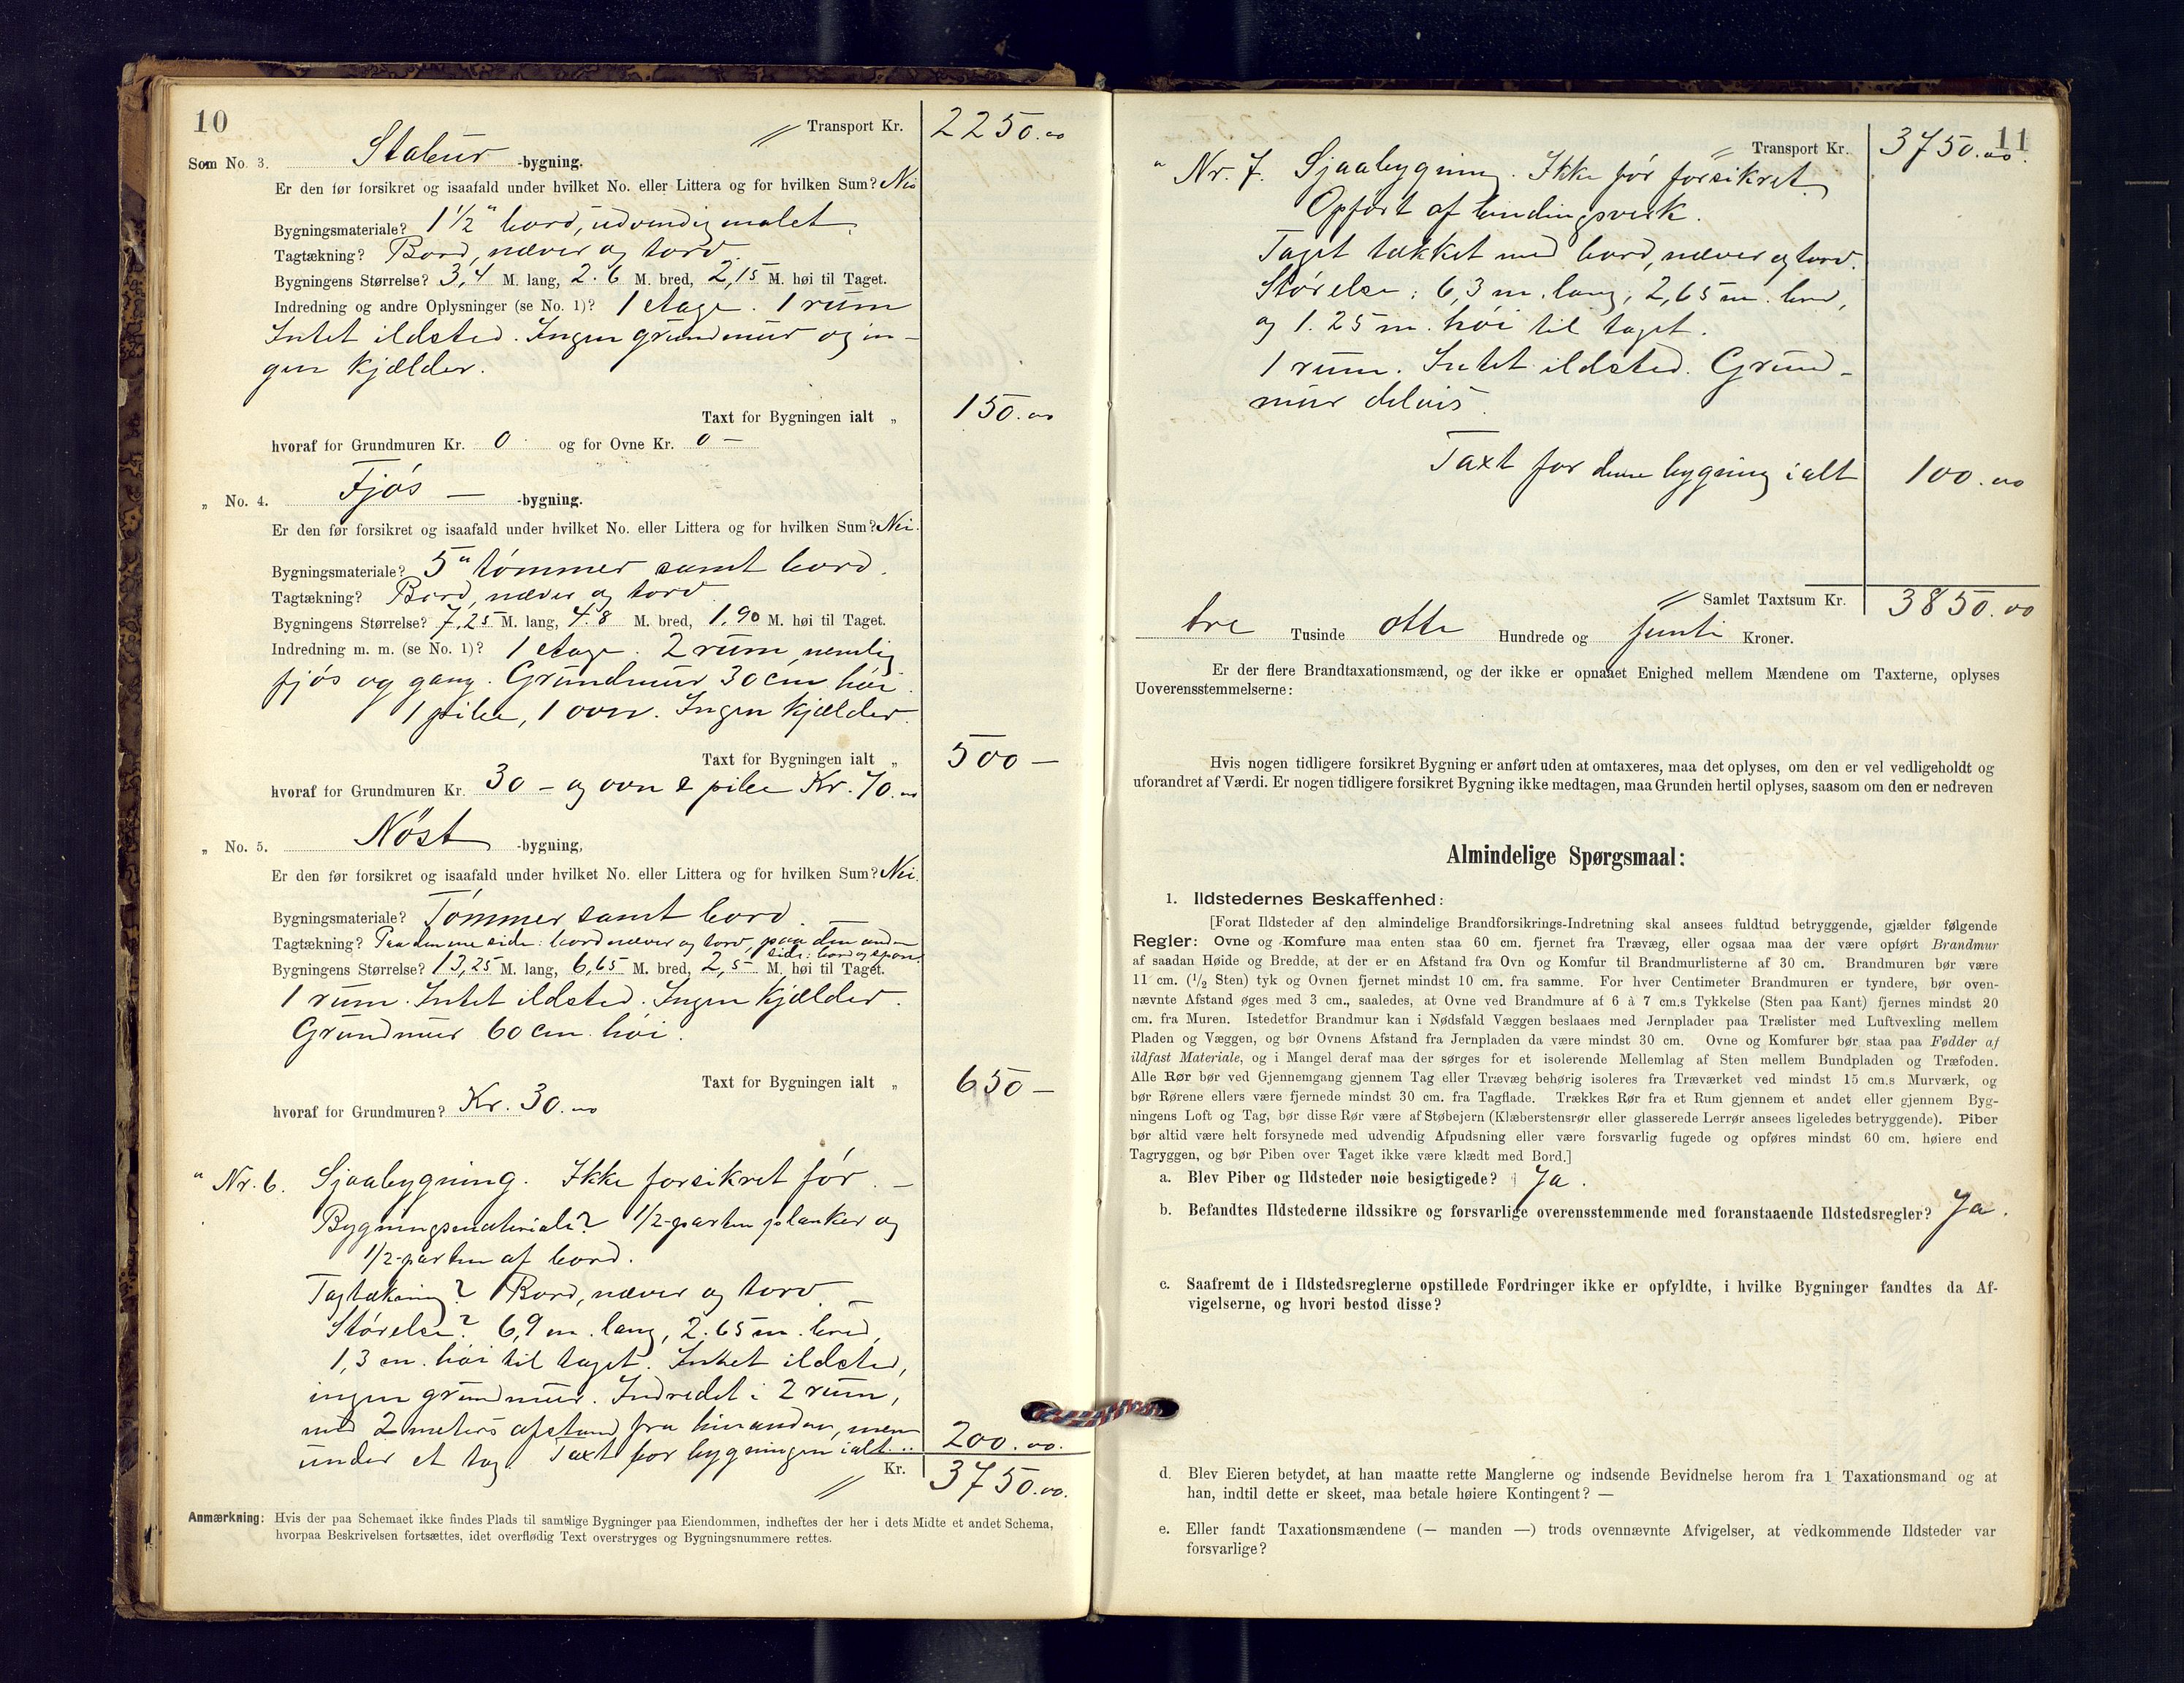 10
〃 Transport Kr. 2250.00
Som No. 3. Stabur -bygning.
Er den før forsikret og isaafald under hvilket No. eller Littera og for hvilken Sum? Nei
Bygningsmateriale? 1 1/2" bord, udvendig malet.
Tagtækning? Bord, næver og torv.
Bygningens Størrelse? 3,4 M. lang, 2.6 M. bred, 2,15 M. høi til Taget.
Indredning og andre Oplysninger (se No. 1)? 1 etage. 1 rum
Intet ildsted. Ingen grundmur og in-
gen kjælder.
Taxt for Bygningen ialt „ 150.00
hvoraf for Grundmuren Kr. 0 og for Ovne Kr. 0 —
„ No. 4. Fjós — -bygning.
Er den før forsikret og isaafald under hvilket No. eller Littera og for hvilken Sum? Nei.
Bygningsmateriale? 5" tómmer samt bord.
Tagtækning? Bord, næver og torv
Bygningens Størrelse? 7,25 M. lang, 4.8 M. bred, 1,90 M. høi til Taget.
Indredning m. m. (se No. 1)? 1 etage. 2 rum, nemlig
fjós og gang. Grundmur 30 cm hói.
1 pibe, 1 ovn. Ingen kjælder.
Taxt for Bygningen ialt „ 500 —
hvoraf for Grundmuren Kr. 30 — og ovn & pibe Kr. 70.00
„ No. 5. Nóst -bygning,
Er den før forsikret og isaafald under hvilket No. eller Littera og for hvilken Sum? Nei.
Bygningsmateriale? Tómmer samt bord.
Tagtækning? Paa den ene side: bord næver og torv, paa den anden
side: bord og spon.
Bygningens Størrelse? 13,25 M. lang, 6,65 M. bred, 2,5 M. høi til Taget.
1 rum. Intet ildsted. Ingen kjælder.
Grundmur 60 cm. hói.
Taxt for Bygningen ialt „ 650 —
hvoraf for Grundmuren? Kr. 30.00
" Nr. 6. Sjaabygning. Ikke forsikret fór. —
Bygningsmateriale? 1/2-parten planker og
1/2-parten af bord.
Tagtækning? Bord, næver og torv. —
Stórelse? 6,9 m. lang, 2.65 m. bred,
1,3 m. hói til taget. Intet ildsted,
ingen grundmur. Indredet i 2 rum,
med 2 meters afstand fra hinanden, men
under et tag. Taxt for bygningen ialt .. 200.00.
〃 Kr. 3750.00.
Anmærkning: Hvis der paa Schemaet ikke findes Plads til samtlige Bygninger paa Eiendommen, indheftes der her i dets Midte et andet Schema,
hvorpaa Beskrivelsen fortsættes, idet overflødig Text overstryges og Bygningsnummere rettes.
11
〃 Transport Kr. 3750.00.
" Nr. 7. Sjaabygning. Ikke fór forsikret
Opfórt af bindingsverk.
Taget tækket med bord, næver og torv.
Stórelse: 6,3 m. lang, 2,65 m. bred,
og 1.25 m. hói til taget.
1 rum. Intet ildsted. Grund-
mur delvis.
Taxt for denne bygning ialt 100.00
〃 Samlet Taxtsum Kr. 3850.00
tre Tusinde otte Hundrede og femti Kroner.
Er der flere Brandtaxationsmænd, og der ikke er opnaaet Enighed mellem Mændene om Taxterne, oplyses
Uoverensstemmelserne:
Hvis nogen tidligere forsikret Bygning er anført uden at omtaxeres, maa det oplyses, om den er vel vedligeholdt og
uforandret af Værdi. Er nogen tidligere forsikret Bygning ikke medtagen, maa Grunden hertil oplyses, saasom om den er nedreven
Almindelige Spørgsmaal:
1. Ildstedernes Beskaffenhed:
[Forat Ildsteder af den almindelige Brandforsikrings-Indretning skal ansees fuldtud betryggende, gjælder følgende
Regler: Ovne og Komfure maa enten staa 60 cm. fjernet fra Trævæg, eller ogsaa maa der være opført Brandmur
af saadan Høide og Bredde, at der er en Afstand fra Ovn og Komfur til Brandmurlisterne af 30 cm. Brandmuren bør være
11 cm. (1/2 Sten) tyk og Ovnen fjernet mindst 10 cm. fra samme. For hver Centimeter Brandmuren er tyndere, bør oven-
nævnte Afstand øges med 3 cm., saaledes, at Ovne ved Brandmure af 6 à 7 cm.s Tykkelse (Sten paa Kant) fjernes mindst 20
cm. fra Muren. Istedetfor Brandmur kan i Nødsfald Væggen beslaaes med Jernplader paa Trælister med Luftvexling mellem
Pladen og Væggen, og bør Ovnens Afstand fra Jernpladen da være mindst 30 cm. Ovne og Komfurer bør staa paa Fødder af
ildfast Materiale, og i Mangel deraf maa der sørges for et isolerende Mellemlag af Sten mellem Bundpladen og Træfoden.
Alle Rør bør ved Gjennemgang gjennem Tag eller Trævæg behørig isoleres fra Træværket ved mindst 15 cm.s Murværk, og
bør Rørene ellers være fjernede mindst 30 cm. fra Tagflade. Trækkes Rør fra et Rum gjennem et andet eller gjennem Byg-
ningens Loft og Tag, bør disse Rør være af Støbejern (Klæberstensrør eller glasserede Lerrør ansees ligeledes betryggende). Piber
bør altid være helt forsynede med udvendig Afpudsning eller være forsvarlig fugede og opføres mindst 60 cm. høiere end
Tagryggen, og bør Piben over Taget ikke være klædt med Bord.]
a. Blev Piber og Ildsteder nøie besigtigede? Ja.
b. Befandtes Ildstederne ildssikre og forsvarlige overensstemmende med foranstaaende Ildstedsregler? Ja.
c. Saafremt de i Ildstedsreglerne opstillede Fordringer ikke er opfyldte, i hvilke Bygninger fandtes da Af-
vigelserne, og hvori bestod disse?
d. Blev Eieren betydet, at han maatte rette Manglerne og indsende Bevidnelse herom fra 1 Taxationsmand og at
han, indtil dette er skeet, maa betale høiere Kontingent? —
e. Eller fandt Taxationsmændene (— manden —) trods ovennævnte Afvigelser, at vedkommende Ildsteder var
forsvarlige?